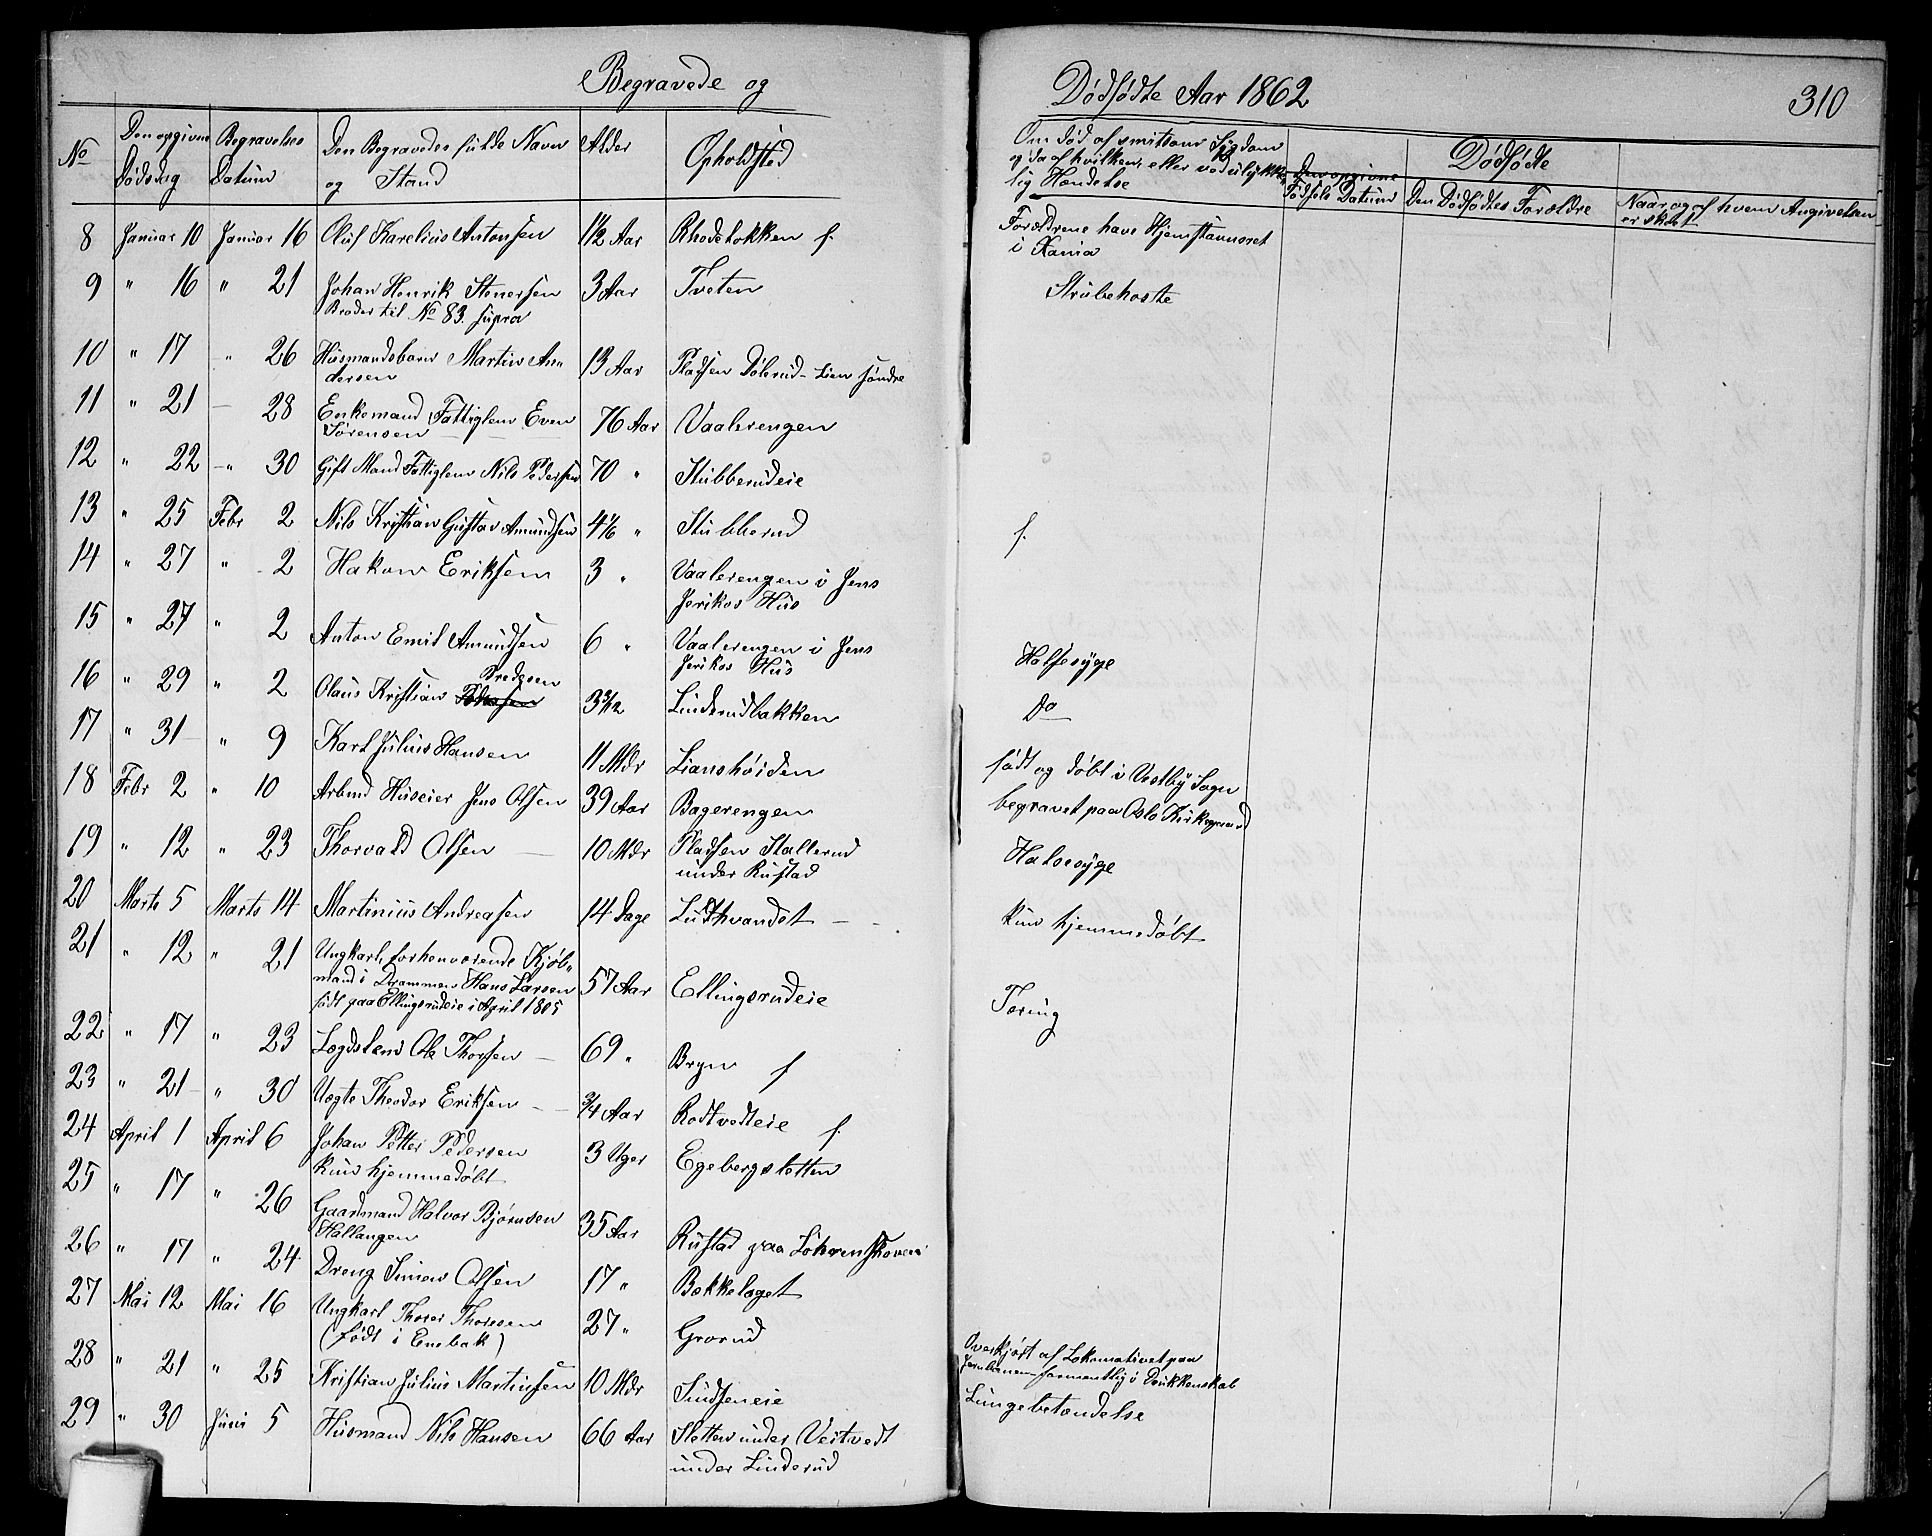 Begravede og
Dødfødte Aar 1862
310
No
Den opgivne Dødsdag
Begravelses Datum
Den Begravedes fulde Navn og Stand
Alder
Opholdsted
Om død af smitsom Sygdom
og da af hvilken, eller ved ulykke-
lig Hændelse
Dødfødte
Den opgivne Fødsels Datum
Den Dødfødtes Forældre
Naar og af hvem Angivelsen er skeet
8 Januar 10 Januar 16 Oluf Karelius Antonsen 1½ Aar Rhodelokken f. Forældrene have Hjemstavnsret
i Xania
9 " 16 " 21 Johan Henrik Stenersen 3 Aar Tveten Strubehoste
Broder til No 83. supra
10 " 17 " 26 Huusmandsbarn Martin An- 13 Aar Pladsen Dølerud-Lien søndre
dersen
11 " 21 — 28 Enkemand Fattiglem Even 76 Aar Vaalerengen
Sørensen
12 " 22 " 30 Gift Mand Fattiglem Nils Pedersen 70 " Stubberudeie
13 " 25 Febr 2 Nils Kristian Gustav Amundsen 4 1/6 " Stubberud f.
14 " 27 " 2 Hakon Eriksen 3 " Vaalerengen i Jens
Jerikos Hus
15 " 27 " 2 Anton Emil Amundsen 6 " Vaalerengen i Jens Halsesyge
Jerikos Hus
16 " 29 " 2 Olaus Kristian Pedersen 3 3/12 Linderudbakken Do
17 " 31 " 9 Karl Julius Hansen 11 Mdr Lianshøiden født og døbt i Vestby Sogn
18 Febr 2 " 10 Arbmd Huseier Jens Olsen 39 Aar Bagerengen begravet paa Oslo Kirkegaard
19 " 12 " 23 Thorvald Olsen 10 Mdr Pladsen Stallerud Halsesyge
under Rustad
20 Marts 5 Marts 14 Martinius Andreasen 14 Dage Ludthvandet kun hjemmedøbt
21 " 12 " 21 Ungkarl, forhenværende Kjøb- 57 Aar Ellingsrudeie Tæring
mand i Drammen Hans Larsen
født paa Ellingsrudeie i April 1805
22 " 17 " 23 Lægdslem Ole Thorsen 69 " Bryn f
23 " 21 " 30 Uægte Theodor Eriksen 3/4 Aar Rodtvedteie f.
24 April 1 April 6 Johan Petter Pedersen 3 Uger Egebergsletten
kun hjemmedøbt
25 " 17 " 26 Gaardmand Halvor Bjørnsen 35 Aar Rustad paa
Hallangen
26 " 17 " 24 Dreng Simen Olsen 17 " Bækkelaget
27 Mai 12 Mai 16 Ungkarl Thorer Thoresen 27 " Grorud Overkjørt af Lokomativet paa
(født i Enebak) Jernbanen formentlig i Drukkenskab
28 " 21 " 25 Kristian Julius Martinsen 10 Mdr Sindseneie Lungebetændelse
29 " 30 Juni 5 Husmand Nils Hansen 66 Aar Sletten under Veitvedt
under Linderud